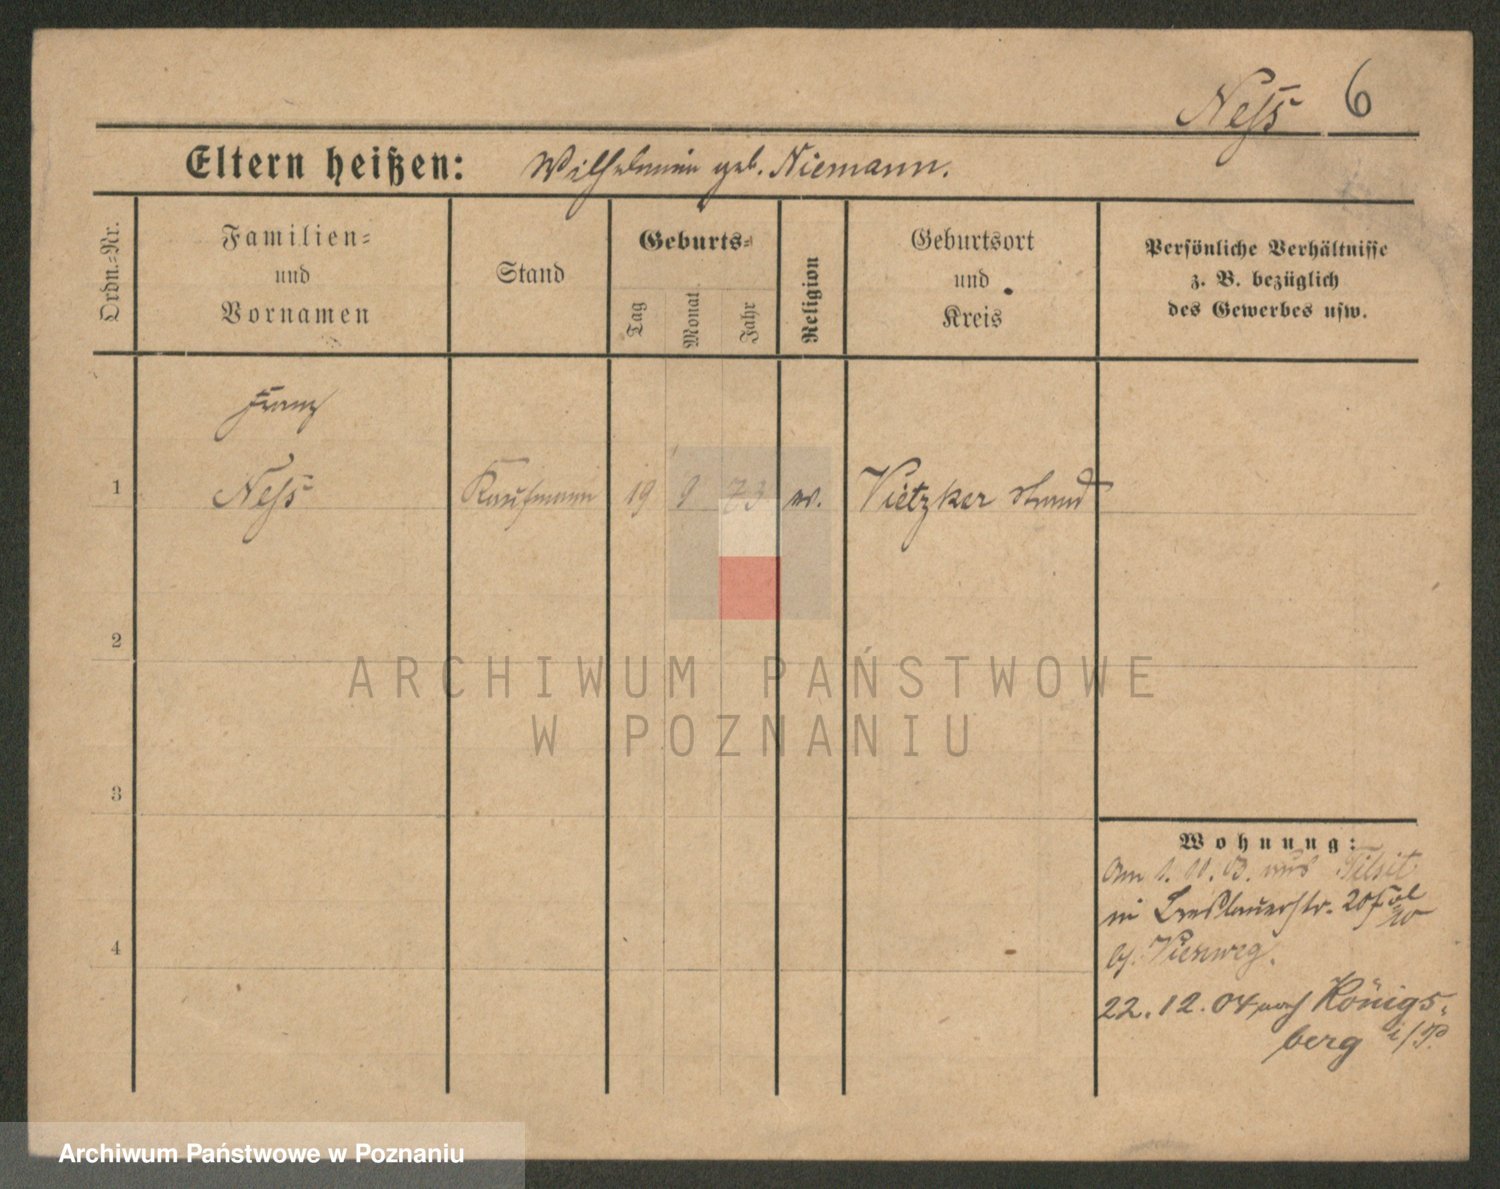 Neß 6
Eltern heißen: Wilhelmine geb. Niemann.
Ordn.=Nr.
Familien=
und
Vornamen
Stand
Geburts=
Tag
Monat
Jahr
Religion
Geburtsort
und
Kreis
Persönliche Verhältnisse
z. B. bezüglich
des Gewerbes usw.
Franz
1 Neß Kaufmann 19 9 73 ev. Vietzker Strand
2
3
4
Wohnung:
Am 1. 11. 03. aus Tilsit
in Breslauerstr. 20
b/. Vierweg.
22. 12. 04 nach Königs-
berg i/P.
ARCHIWUM PAŃSTWOWE
W POZNANIU
Archiwum Państwowe w Poznaniu